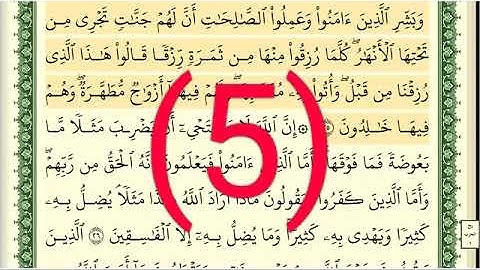 وَبَشِّرِ ٱلَّذِينَ ءَامَنُوا۟ وَعَمِلُوا۟ ٱلصَّـٰلِحَـٰتِ أَنَّ لَهُمْ جَنَّـٰتٍ تَجْرِى مِن
تَحْتِهَا ٱلْأَنْهَـٰرُ ۖ كُلَّمَا رُزِقُوا۟ مِنْهَا مِن ثَمَرَةٍ رِّزْقًا ۙ قَالُوا۟ هَـٰذَا ٱلَّذِى
رُزِقْنَا مِن قَبْلُ ۖ وَأُتُوا۟ بِهِۦ فِيهَآ أَزْوَٰجٌ مُّطَهَّرَةٌ ۖ وَهُمْ
فِيهَا خَـٰلِدُونَ ۞ إِنَّ ٱللَّهَ مَثَلًا مَّا
(5)
بَعُوضَةً فَمَا فَوْقَهَا ۚ فَأَمَّا ءَامَنُوا۟ فَيَعْلَمُونَ أَنَّهُ ٱلْحَقُّ مِن رَّبِّهِمْ ۖ
وَأَمَّا ٱلَّذِينَ كَفَرُوا۟ فَيَقُولُونَ مَاذَآ أَرَادَ ٱللَّهُ بِهَـٰذَا مَثَلًا ۘ يُضِلُّ بِهِۦ
كَثِيرًا وَيَهْدِى بِهِۦ كَثِيرًا ۚ وَمَا يُضِلُّ بِهِۦٓ إِلَّا ٱلْفَـٰسِقِينَ ٢٦ ٱلَّذِينَ